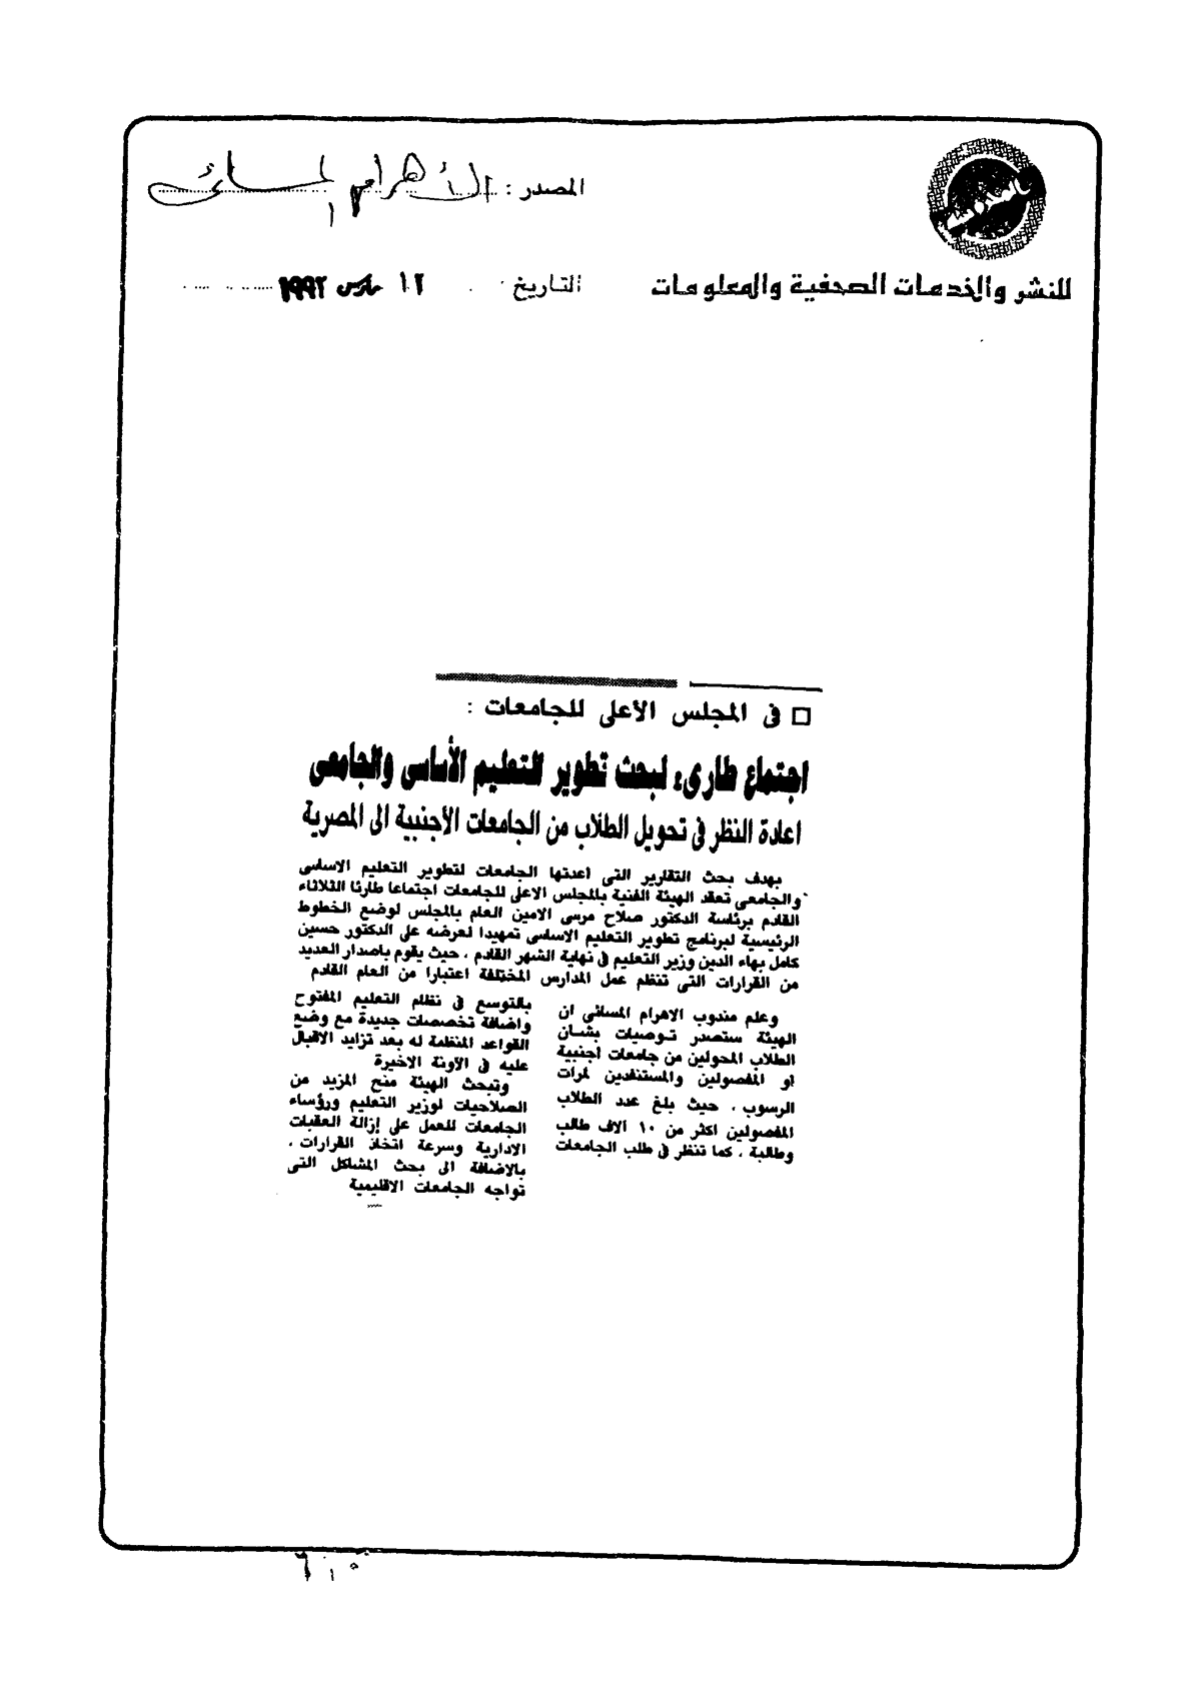 المصدر : الأهرام المسائى
للنشر والخدمات الصحفية والمعلومات
التاريخ : ١٢ مارس ١٩٩٢
□ فى المجلس الأعلى للجامعات :
اجتماع طارىء لبحث تطوير التعليم الأساسى والجامعى
اعادة النظر فى تحويل الطلاب من الجامعات الأجنبية الى المصرية
بهدف بحث التقارير التى اعدتها الجامعات لتطوير التعليم الاساسى
والجامعى تعقد الهيئة الفنية بالمجلس الاعلى للجامعات اجتماعا طارئا الثلاثاء
القادم برئاسة الدكتور صلاح مرسى الامين العام بالمجلس لوضع الخطوط
الرئيسية لبرنامج تطوير التعليم الاساسى تمهيدا لعرضه على الدكتور حسين
كامل بهاء الدين وزير التعليم فى نهاية الشهر القادم ، حيث يقوم باصدار العديد
من القرارات التى تنظم عمل المدارس المختلفة اعتبارا من العام القادم
وعلم مندوب الاهرام المسائى ان
الهيئة ستصدر توصيات بشان
الطلاب المحولين من جامعات اجنبية
او المفصولين والمستنفدين لمرات
الرسوب ، حيث بلغ عدد الطلاب
المفصولين اكثر من ١٠ الاف طالب
وطالبة ، كما تنظر فى طلب الجامعات
بالتوسع فى نظام التعليم المفتوح
واضافة تخصصات جديدة مع وضع
القواعد المنظمة له بعد تزايد الاقبال
عليه فى الآونة الاخيرة
وتبحث الهيئة منح المزيد من
الصلاحيات لوزير التعليم ورؤساء
الجامعات للعمل على إزالة العقبات
الادارية وسرعة اتخاذ القرارات ،
بالاضافة الى بحث المشاكل التى
تواجه الجامعات الاقليمية